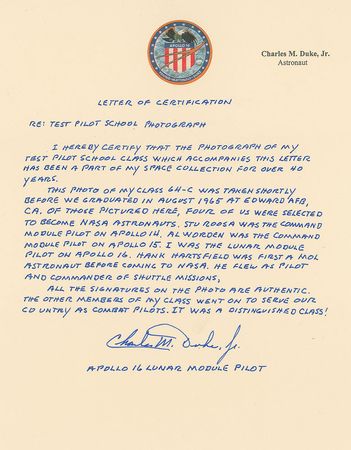 APOLLO 16
Charles M. Duke, Jr.
Astronaut
LETTER OF CERTIFICATION
RE: TEST PILOT SCHOOL PHOTOGRAPH
I HEREBY CERTIFY THAT THE PHOTOGRAPH OF MY
TEST PILOT SCHOOL CLASS WHICH ACCOMPANIES THIS LETTER
HAS BEEN A PART OF MY SPACE COLLECTION FOR OVER 40
YEARS.
THIS PHOTO OF MY CLASS 64-C WAS TAKEN SHORTLY
BEFORE WE GRADUATED IN AUGUST 1965 AT EDWARD AFB,
CA. OF THOSE PICTURED HERE, FOUR OF US WERE SELECTED
TO BECOME NASA ASTRONAUTS. STU ROOSA WAS THE COMMAND
MODULE PILOT ON APOLLO 14. AL WORDEN WAS THE COMMAND
MODULE PILOT ON APOLLO 15. I WAS THE LUNAR MODULE
PILOT ON APOLLO 16. HANK HARTSFIELD WAS FIRST A MOL
ASTRONAUT BEFORE COMING TO NASA. HE FLEW AS PILOT
AND COMMANDER OF SHUTTLE MISSIONS,
ALL THE SIGNATURES ON THE PHOTO ARE AUTHENTIC.
THE OTHER MEMBERS OF MY CLASS WENT ON TO SERVE OUR
COUNTRY AS COMBAT PILOTS. IT WAS A DISTINGUISHED CLASS!
Charles M. Duke, Jr.
APOLLO 16 LUNAR MODULE PILOT